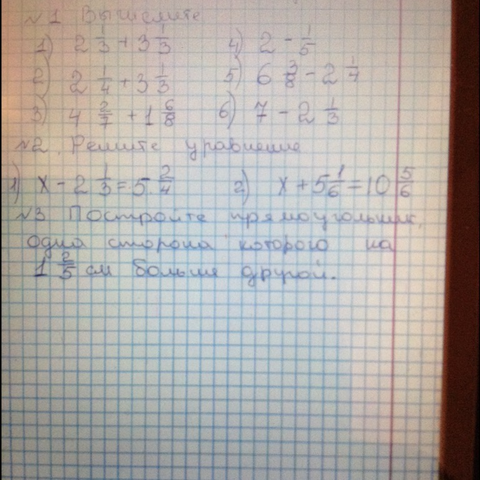 №1 Вычислите
1) 2 1/3 + 3 1/3 4) 2 - 1/5
2) 2 1/4 + 3 1/3 5) 6 3/8 - 2 1/4
3) 4 2/7 + 1 6/8 6) 7 - 2 1/3
№2. Решите уравнение
1) x - 2 1/3 = 5 2/4 2) x + 5 1/6 = 10 5/6
№3 Постройте прямоугольник,
одна сторона которого на
1 2/5 см больше другой.